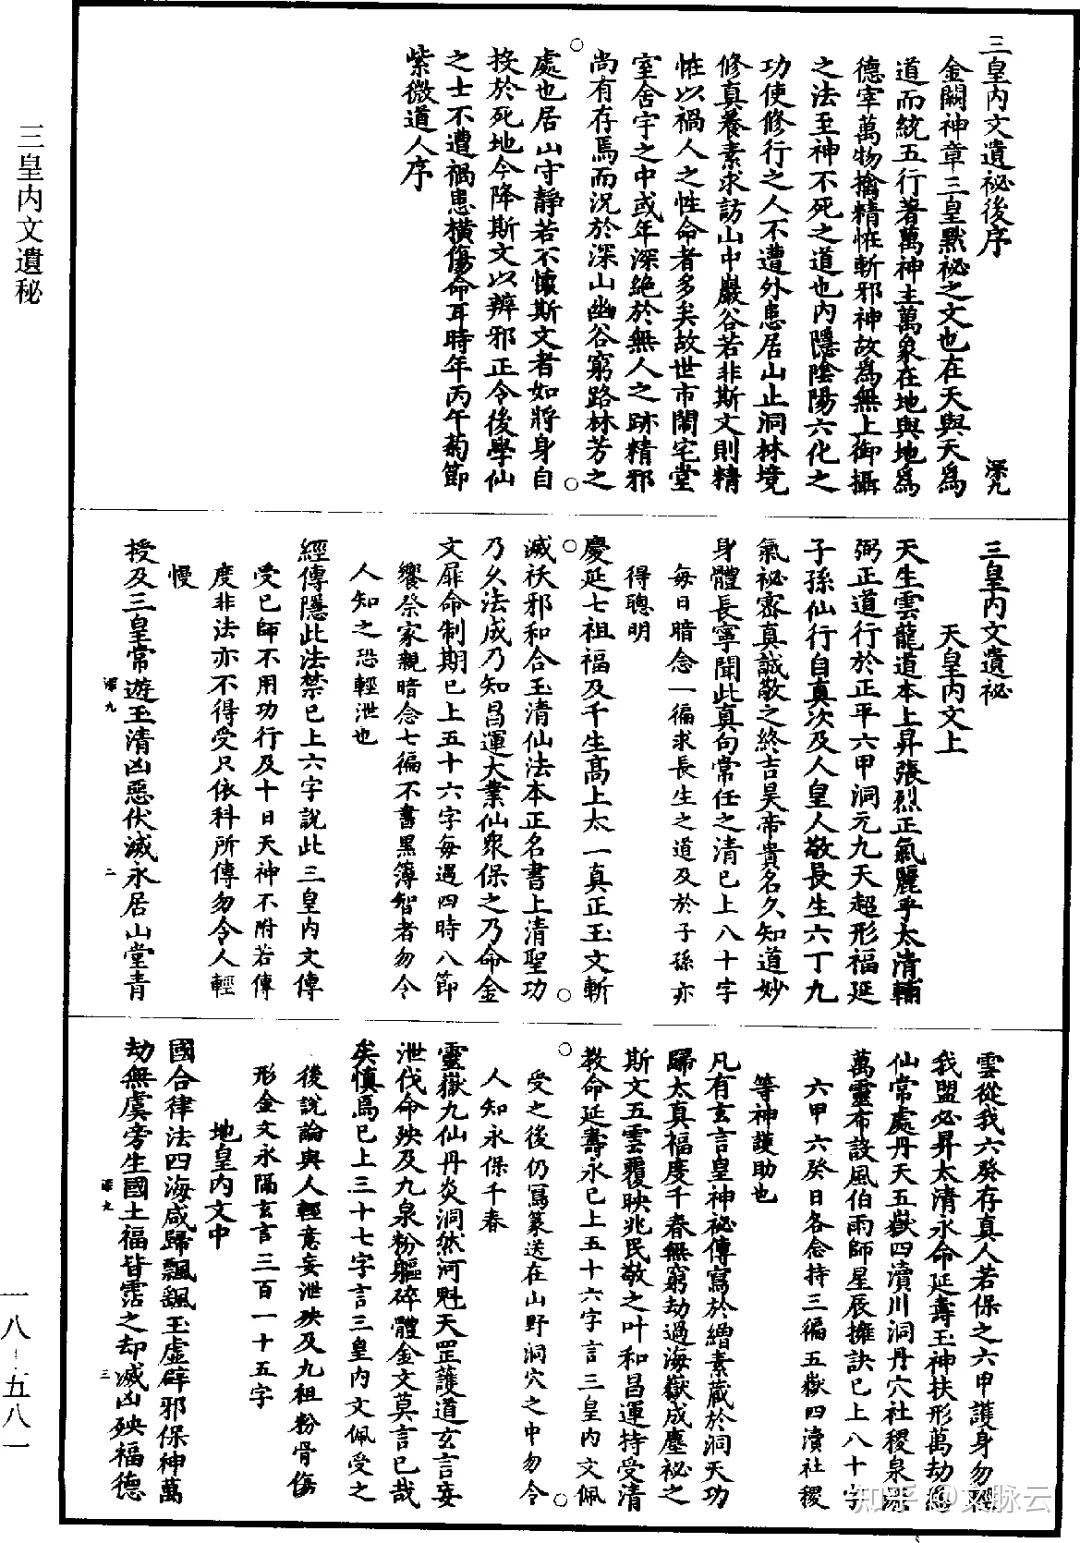 三皇内文遺秘
三皇内文遺祕後序
深九
金闕神章三皇默祕之文也在天與天爲
道而統五行著萬神主萬象在地與地爲
德宰萬物擒精恠斬邪神故爲無上御攝
之法至神不死之道也内隱陰陽六化之
功使修行之人不遭外患居山止洞林境
修真養素求訪山中巖谷若非斯文則精
恠以禍人之性命者多矣故世市闤宅堂
室舍宇之中或年深絶於無人之跡精邪
尚有存焉而況於深山幽谷窮路林芳之
處也居山守静若不懷斯文者如將身自
投於死地今降斯文以辨邪正令後學仙
之士不遭禍患橫傷命耳時年丙午菊節
紫微道人序
三皇内文遺祕
天皇内文上
天生雲龍道本上昇張烈正氣麗乎太清輔
弼正道行於正平六甲洞元九天超形福延
子孫仙行自真次及人皇人敬長生六丁九
氣祕密真誠敬之終吉昊帝貴名久知道妙
身體長寧聞此真句常任之清已上八十字
每日暗念一徧求長生之道及於子孫亦
得聰明
慶延七祖福及千生高上太一真正玉文斬
滅袄邪和合玉清仙法本正名書上清聖功
乃幺法成乃知昌運大業仙衆保之乃命金
文扉命制期已上五十六字每遇四時八節
饗祭家親暗念七徧不書黑簿智者勿令
人知之恐輕泄也
經傳隱此法禁已上六字說此三皇内文傳
受已師不用功行及十日天神不附若傳
度非法亦不得受只依科所傳勿令人輕
慢
授及三皇常遊玉清凶惡伏滅永居山堂青
深九
二
雲從我六癸存真人若保之六甲護身勿
我盟必昇太清永命延壽玉神扶形萬劫爲
仙常處丹天五嶽四瀆川洞丹穴社稷泉源
萬靈布設風伯雨師星辰擁訣已上八十字
六甲六癸日各念持三徧五嶽四瀆社稷
等神護助也
凡有玄言皇神祕傳寫於繒素藏於洞天功
歸太真福慶千春無窮劫過海嶽成塵祕之
斯文五雲覆映兆民敬之叶和昌運持受清
教命延壽永已上五十六字言三皇内文佩
受之後仍寫篆送在山野洞穴之中勿令
人知永保千春
靈嶽九仙丹炎洞然河魁天罡護道玄言妄
泄伐命殃及九泉粉軀碎體金文莫言已哉
矣慎焉已上三十七字言三皇内文佩受之
後說論與人輕意妄泄殃及九祖粉骨傷
形金文永隔玄言三百一十五字
地皇内文中
國合律法四海咸歸飄飄玉虚辟邪保神萬
劫無虞旁生國土福皆霑之却滅凶殃福德
深九
三
一八—五八一
知乎 @文脉云